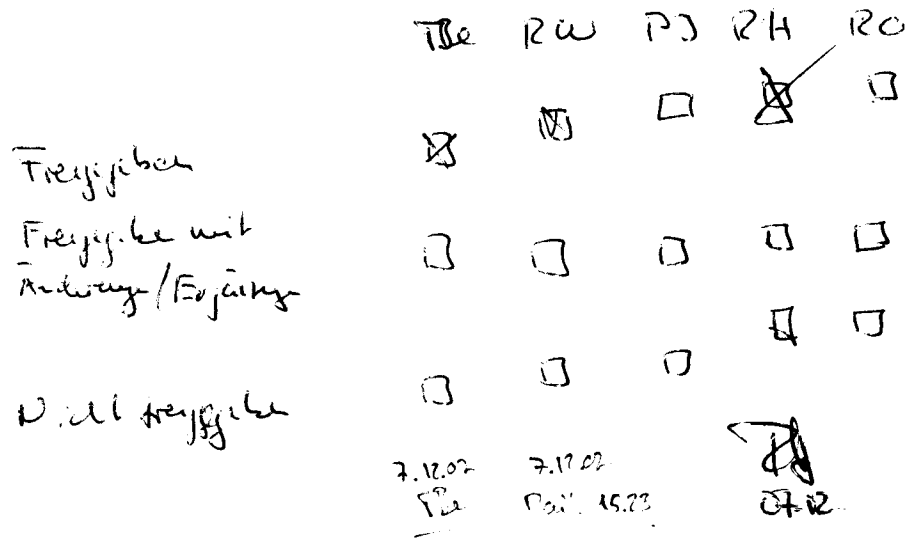 TBe RW PJ RH RO
Freigegeben
Freigabe mit
Änderunge/Ergänzunge
Nicht freigegeben
7.12.02 7.12.02
TBe 15.23 07.12.